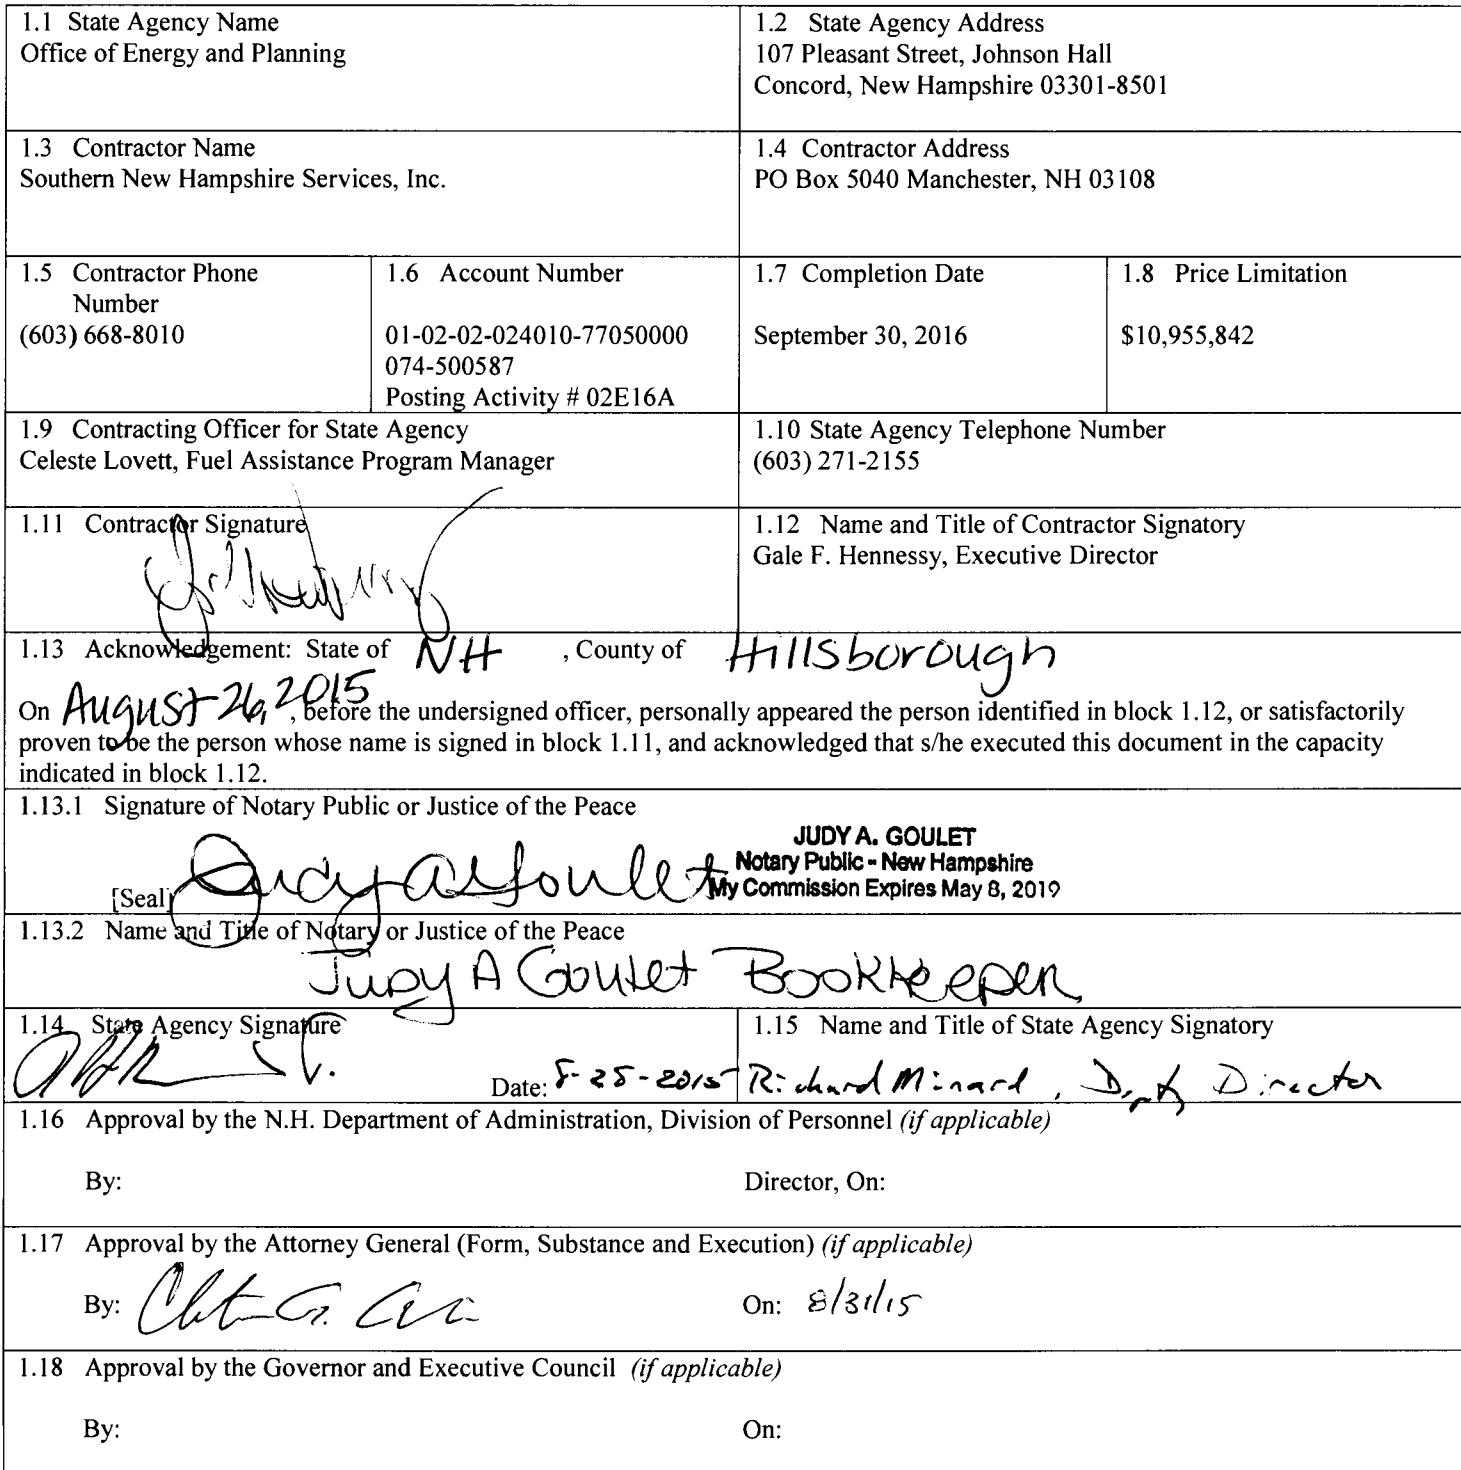 1.1 State Agency Name
Office of Energy and Planning
1.2 State Agency Address
107 Pleasant Street, Johnson Hall
Concord, New Hampshire 03301-8501
1.3 Contractor Name
Southern New Hampshire Services, Inc.
1.4 Contractor Address
PO Box 5040 Manchester, NH 03108
1.5 Contractor Phone
Number
(603) 668-8010
1.6 Account Number
01-02-02-024010-77050000
074-500587
Posting Activity # 02E16A
1.7 Completion Date
September 30, 2016
1.8 Price Limitation
$10,955,842
1.9 Contracting Officer for State Agency
Celeste Lovett, Fuel Assistance Program Manager
1.10 State Agency Telephone Number
(603) 271-2155
1.11 Contractor Signature
1.12 Name and Title of Contractor Signatory
Gale F. Hennessy, Executive Director
1.13 Acknowledgement: State of NH , County of Hillsborough
On August 26, 2015, before the undersigned officer, personally appeared the person identified in block 1.12, or satisfactorily
proven to be the person whose name is signed in block 1.11, and acknowledged that s/he executed this document in the capacity
indicated in block 1.12.
1.13.1 Signature of Notary Public or Justice of the Peace
[Seal] Judy A Goulet
JUDY A. GOULET
Notary Public - New Hampshire
My Commission Expires May 8, 2019
1.13.2 Name and Title of Notary or Justice of the Peace
Judy A Goulet Bookkeeper
1.14 State Agency Signature
Date: 8-25-2015
1.15 Name and Title of State Agency Signatory
Richard Minard, Director
1.16 Approval by the N.H. Department of Administration, Division of Personnel (if applicable)
By: Director, On:
1.17 Approval by the Attorney General (Form, Substance and Execution) (if applicable)
By: On: 8/31/15
1.18 Approval by the Governor and Executive Council (if applicable)
By: On: